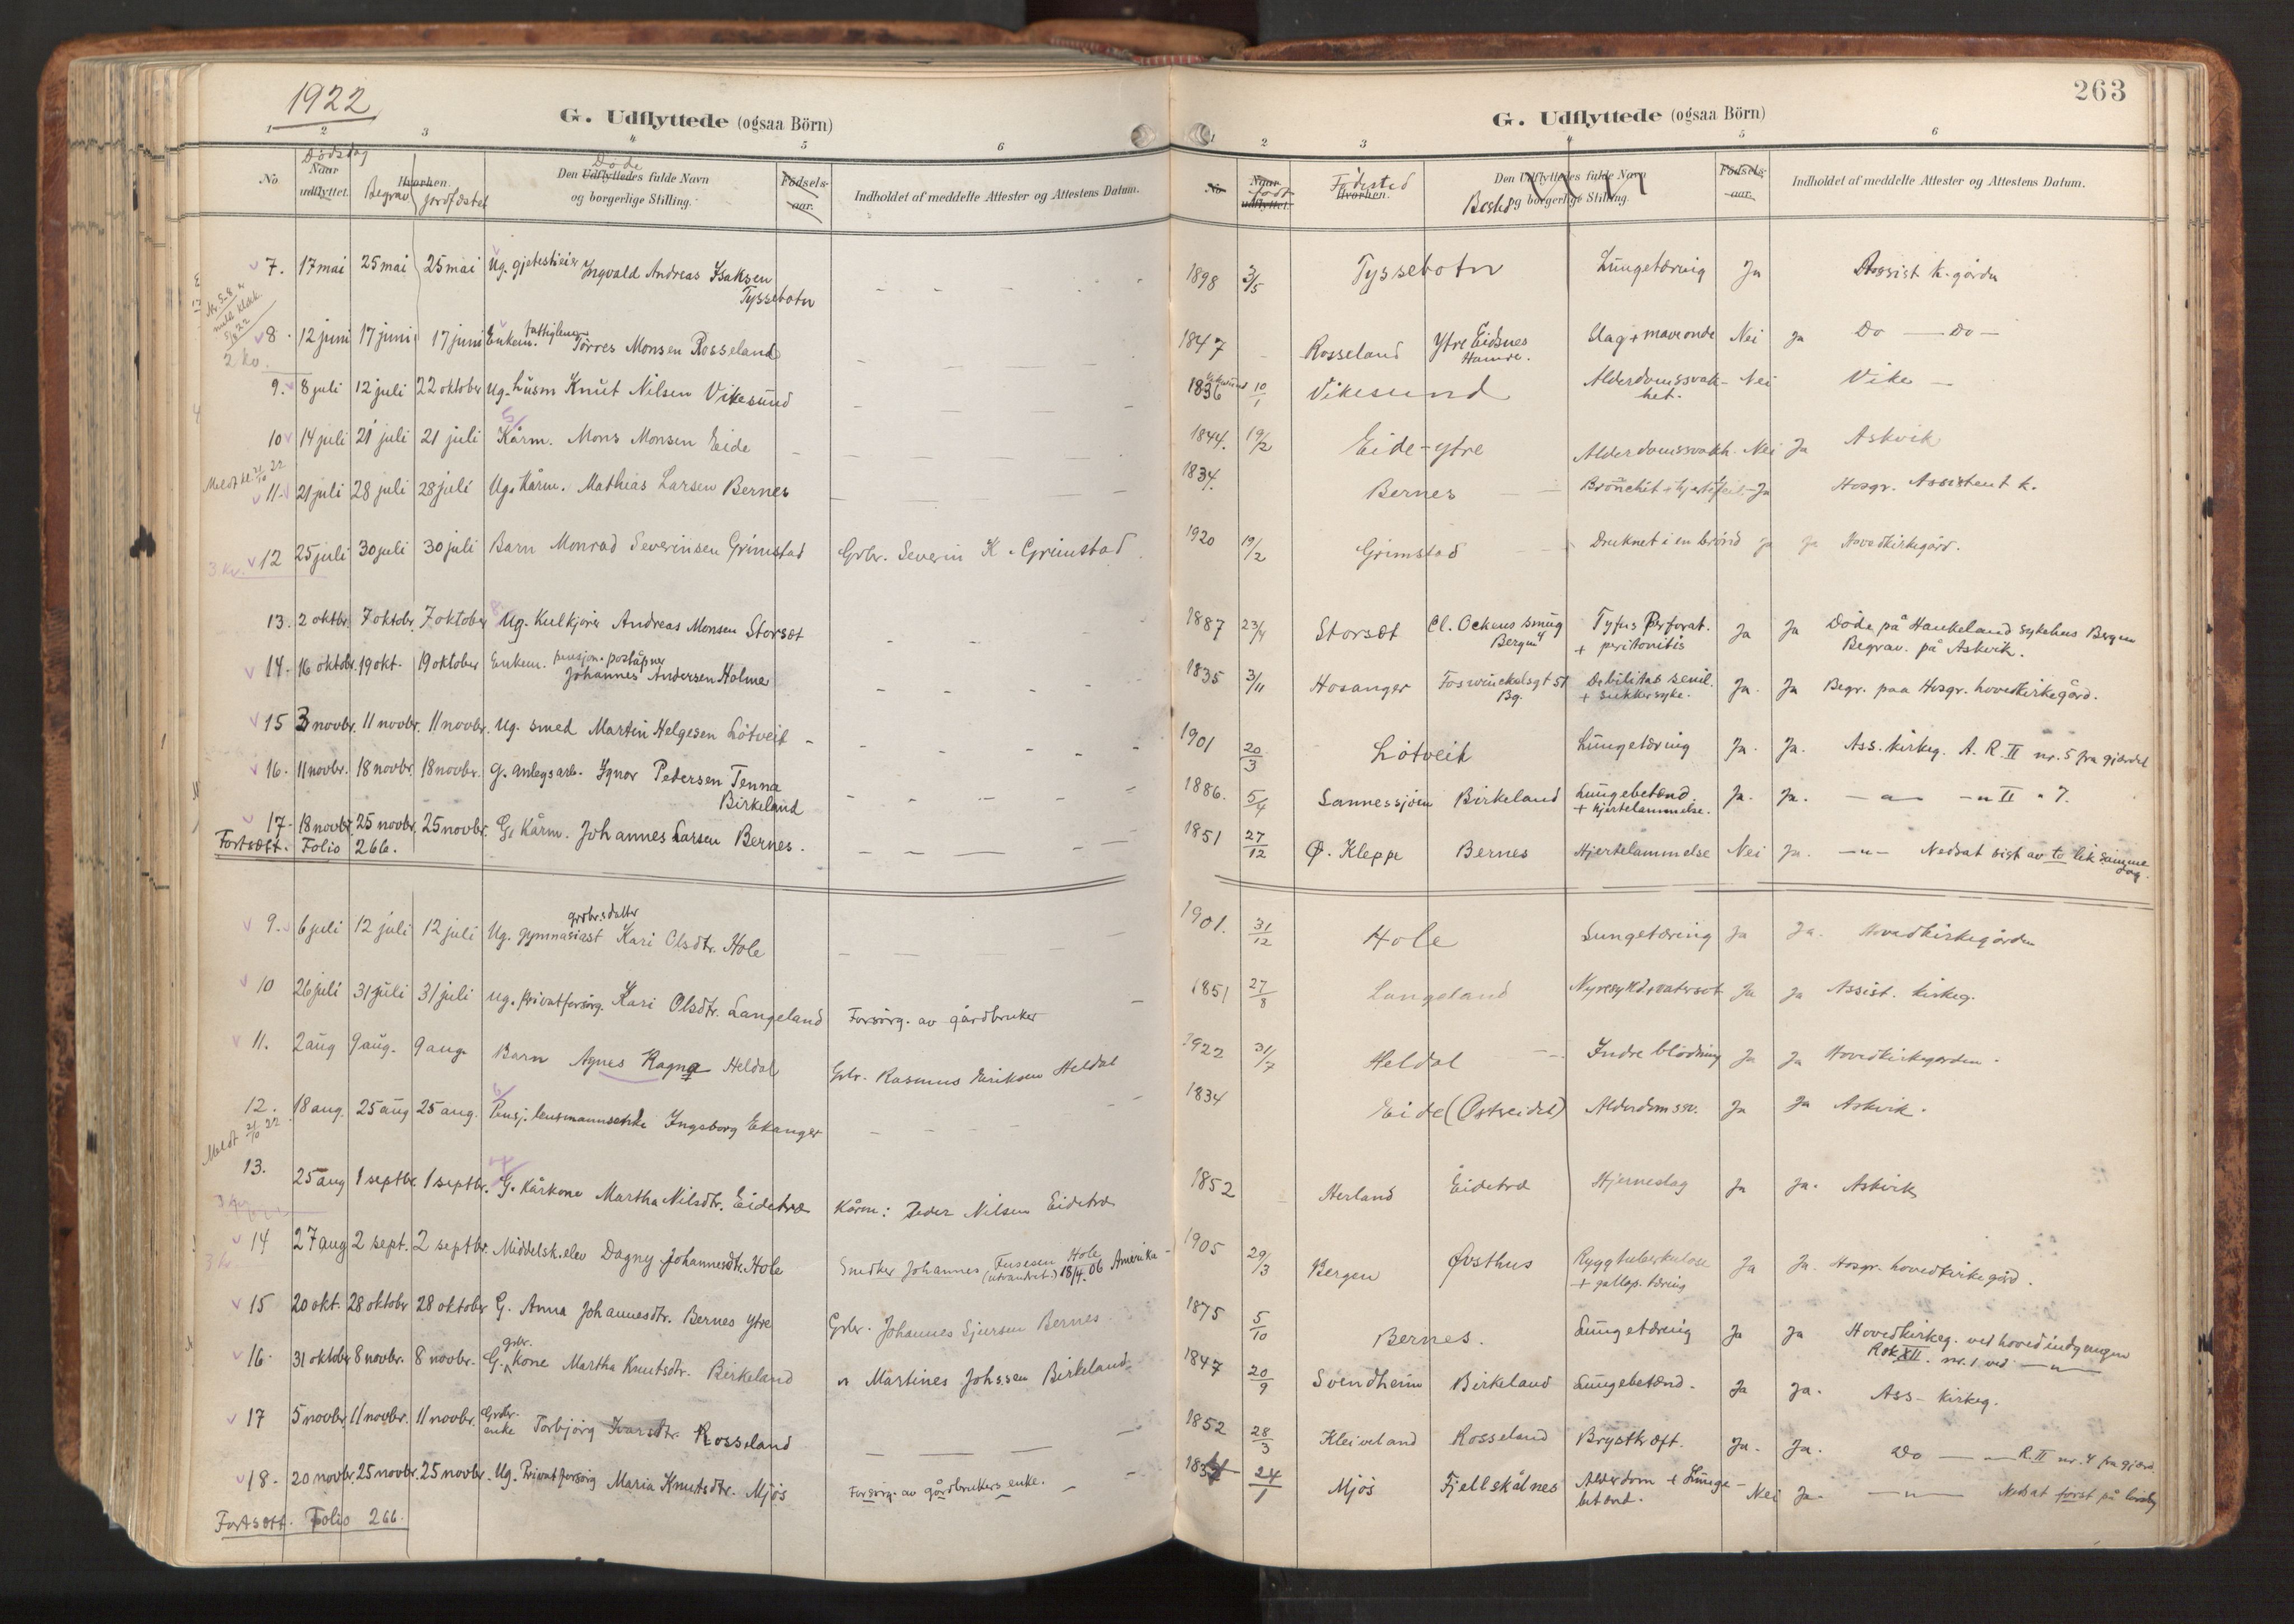 1922
G. Udflyttede (ogsaa Börn)
1 2 3 4 5 6
No
Dödsdag
Naar udflyttet.
Hvorhen.
Begrav jordfæstet
Döde
Den Udflyttedes fulde Navn
og borgerlige Stilling.
Födsels-
aar.
Indholdet af meddelte Attester og Attestens Datum.
7. 17 mai 25 mai 25 mai Ug. Ingvald Andreas Isaksen
Tyssebotn
8. 12 juni 17 juni 17 juni Enkem. Torres Monsen Rosseland
2 kv.
9. 8 juli 12 juli 22 oktober Ug. husm Knut Nilsen Vikesund
10 14 juli 21 juli 21 juli Kårm. Mons Monsen Eide
11. 21 juli 28 juli 28 juli Ug. Kårm. Mathias Larsen Bernes
12 25 juli 30 juli 30 juli Barn Monrad Severinsen Grimstad Grbr. Severin K. Grimstad
3 kv.
13. 2 oktbr. 7 oktobr. 7 oktober Ug. Kulkjörer Andreas Monsen Storset
14. 16 oktobr. 19 okt. 19 oktober Enkem. pensjon. poståpner
Johannes Andersen Holme
15 3 novbr. 11 novbr. 11 novbr. Ug. smed Martin Helgesen Lötveit
16. 11 novbr. 18 novbr. 18 novbr. G. anlegsarb. Ignor Pedersen Tenna
Birkeland
17. 18 novbr. 25 novbr. 25 novbr. G. Kårm. Johannes Larsen Bernes.
Fortsætt. Folio 266.
9. 6 juli 12 juli 12 juli Ug. gymnasiast grbr.sdatter Kari Olsdtr. Hole
10 26 juli 31 juli 31 juli Ug. privatforsörg. Kari Olsdtr. Langeland Forsörg. av gårdbruker
11. 2 aug 9 aug. 9 aug. Barn Agnes Ragna Heldal Grbr. Rasmus Eriksen Heldal
12. 18 aug. 25 aug 25 aug. Pensj. lensmannsenke Ingeborg Ekanger
13. 25 aug 1 septbr. 1 septbr. G. Kårkone Martha Nilsdtr. Eidetræ Kårm: Peder Nilsen Eidetræ
14 27 aug 2 sept. 2 septbr. Middelsk.elev Dagny Johannesdtr. Hole Snedker Johannes Fusesen Hole
(utvandret) 18/4.06 Amerika
15 20 okt. 28 oktober 28 oktober G. Anna Johannesdtr. Bernes ytre Grbr. Johannes Sjursen Bernes
16. 31 oktober 8 novbr. 8 novbr. G. grbr. kone Martha Knutsdtr. Birkeland " Martines Johssen Birkeland
17 5 novbr. 11 novbr. 11 novbr. Grbr. enke Torbjörg Ivarsdtr. Rosseland
18. 20 novbr. 25 novbr. 25 novbr. Ug. Privatforsörg Maria Knutsdtr. Mjös Forsörg. av gårdbrukers enke.
Fortsætt. Folio 266.
263
G. Udflyttede (ogsaa Börn)
1 2 3 4 5 6
No
Naar udflyttet.
födt
Födested
Hvorhen.
Den Udflyttedes fulde Navn
og borgerlige Stilling.
Bosted
Födsels-
aar.
Indholdet af meddelte Attester og Attestens Datum.
1898 3/5 Tyssebotn Lungetæring Ja Assist k.gården
1847 Rosseland Ytre Eidsnes
Hamre. Slag + maveonde Nei Ja Do — Do —
1836 10/1 Vikesund Alderdomssvak-
het. Nei Vike —
1844. 19/2 Eide-ytre Alderdomssvakh. Nei Ja Askvik
1834. Bernes Ja Hosgr. Assistent k.
1920 19/2 Grimstad Druknet i en brönd Ja Ja Hovedkirkegård.
1887 23/4 Storset Cl. Ockens smug
Bergen Tyfus Perforat.
+ peritonitis Ja Ja Döde på Haukeland sykehus Bergen
Begrav. på Askvik.
1835 3/11 Hosanger Foswinckelsgt 51
Bg. Debilitas senil.
+ sukkersyke. Ja. Ja Begr. paa Hosgr. hovedkirkegård.
1901 20/3 Lötveit Lungetæring Ja. Ja. Ass. kirkeg. A. R. II nr. 5 fra gjerdet
1886. 5/4 Sannessjöen Birkeland Lungebetænd.
+ hjertelammelse. Ja. Ja. — " — " II " 7.
1851 27/12 Ø. Kleppe Bernes Hjertelammelse Nei Ja. — " — Nedsat sist av to lik samme
dag.
1901. 31/12 Hole Lungetæring Ja Ja. Hovedkirkegården
1851 27/8 Langeland Nyresykd. vatersot Ja Ja Assist. kirkeg.
1922 31/7 Heldal Indre blödning Ja Ja Hovedkirkegården.
1834 Eide (Østreidet) Alderdomssv. Ja Ja Askvik.
1852 Herland Eidetræ Hjerneslag Ja Ja. Askvik
1905 29/3 Bergen Øvsthus Ryggtuberkulose
+ gallop. tæring Ja Ja. Hosgr. hovedkirkegård.
1875 5/10 Bernes. Lungetæring Ja Ja Hovedkirkeg. ved hovedindgangen
Rek XII. nr. 1 ved — " —
1847 20/9 Svendheim Birkeland Lungebetænd. Ja Ja. Ass- kirkeg.
1852 28/3 Kleiveland Rosseland Brystkræft. Ja. Ja. Do — " — R. II nr. 4 fra gjerd.
24/1 Mjös Fjellskålnes Alderdom + Lunge-
betænd. Nei Ja. — " — Nedsat först på